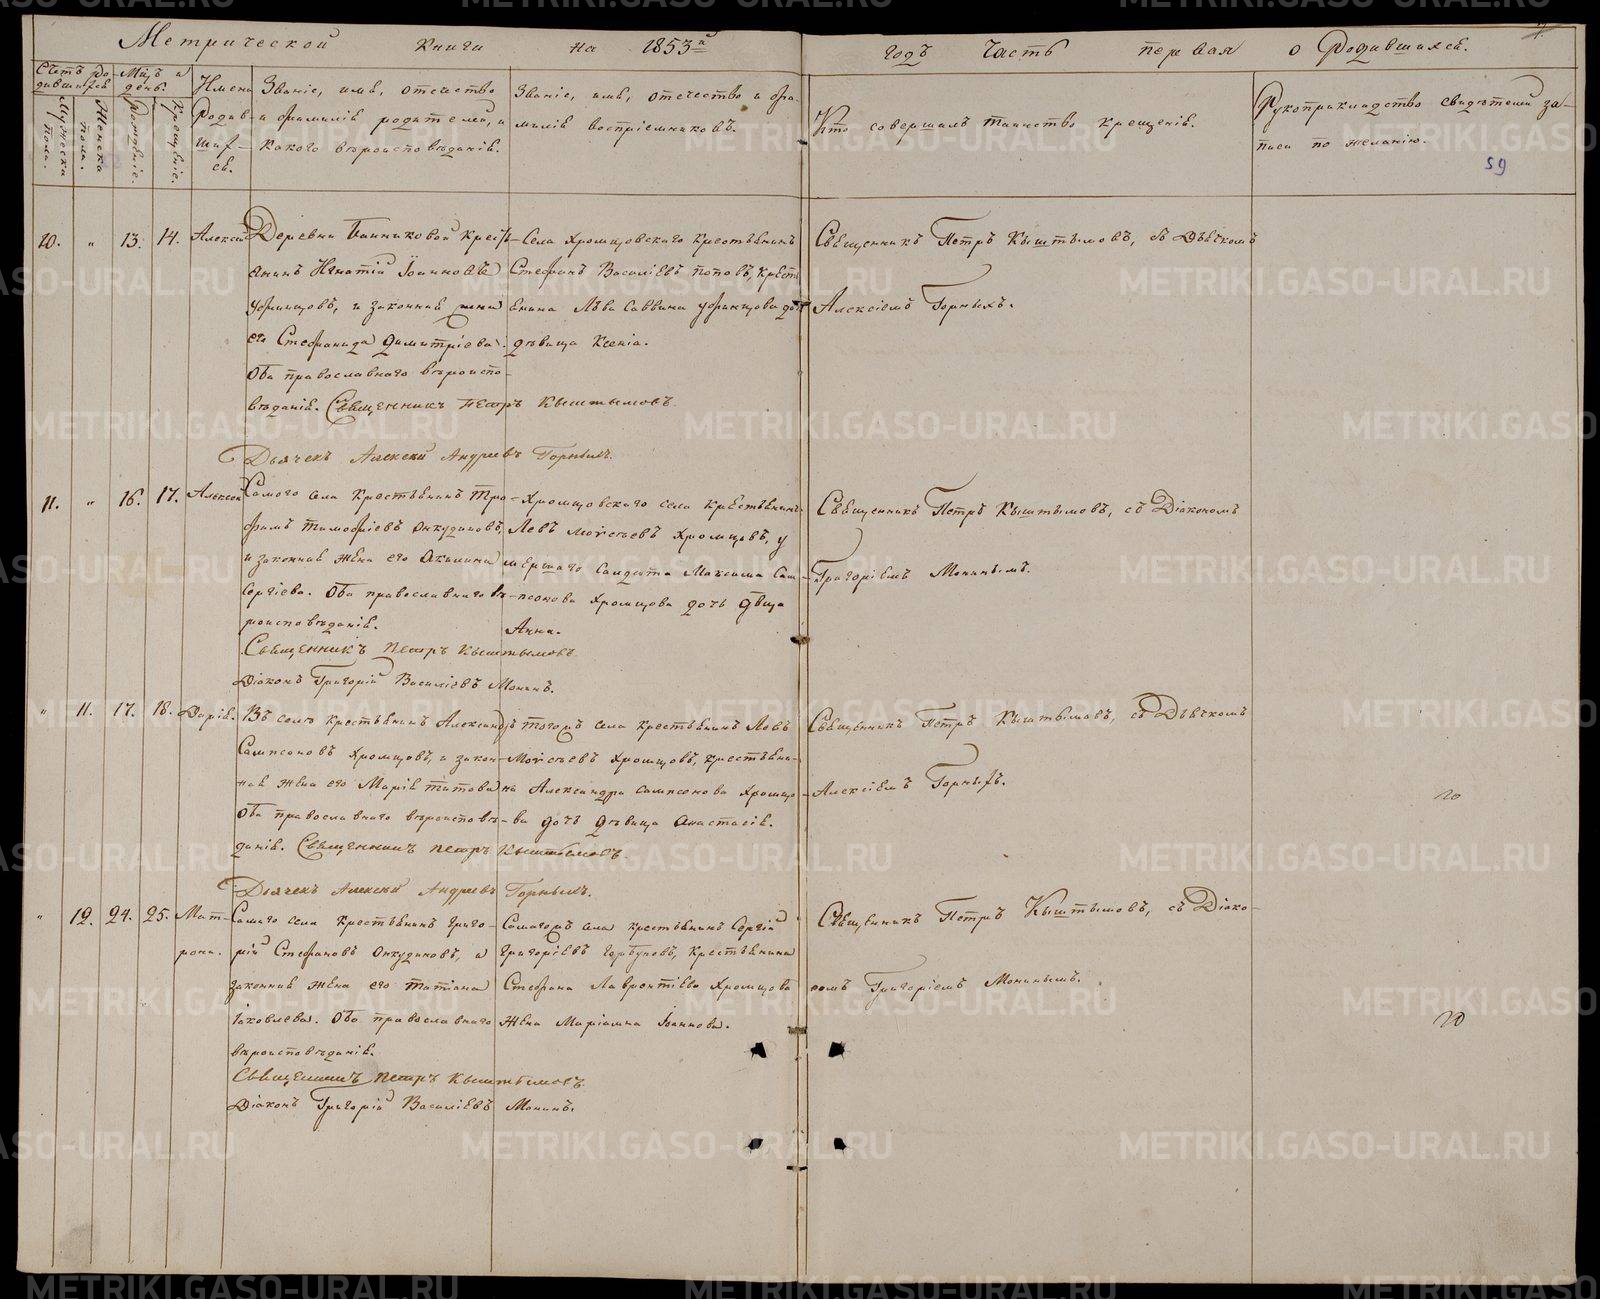 Метрической книги на 1853й годъ часть первая о Родившихся.
Счетъ родившихся
Мѣц. и день.
Мужеска пола.
Женска пола.
Рожденіе.
Крещеніе.
Имена Родившихся.
Званіе, имя, отечество и фамилія родителей, и какого вѣроисповѣданія.
Званіе, имя, отечество и фамилія воспріемниковъ.
Кто совершалъ таинство крещенія.
Рукоприкладство свидѣтелей записи по желанію.
59
10. " 13. 14. Алексій
Деревни Банниковой крестьянинъ Игнатій Іоанновъ
Уфимцовъ, и законная жена
его Стефанида Димитріева.
Оба православнаго вѣроиспо-
вѣданія. Священникъ Петръ Кыштымовъ
Дьячекъ Алексій Андреевъ Горныхъ.
Села Хромцовскаго крестьянинъ
Стефанъ Василіевъ Поповъ, кресть
янина Льва Саввина Уфимцова дочь
дѣвица Ксенія.
Священникъ Петръ Кыштымовъ, съ Дьячкомъ
Алексіемъ Горныхъ.
11. " 16. 17. Алексій
Самого села крестьянинъ Тро-
фимъ Тимофіевъ Онкудиновъ,
и законная жена его Акилина
Сергіева. Оба православнаго вѣ-
роисповѣданія.
Священникъ Петръ Кыштымовъ
Діаконъ Григорій Василіевъ Монинъ.
Хромцовскаго села крестьянинъ
Левъ Моѵсеевъ Хромцовъ, у
мершаго солдата Максима Сам-
псонова Хромцова дочь дѣвица
Анна.
Священникъ Петръ Кыштымовъ, съ Діакономъ
Григоріемъ Монинымъ.
" 11. 17. 18. Дарія.
Въ селѣ крестьянинъ Александръ
Сампсоновъ Хромцовъ, и закон-
ная жена его Марія Титова
Оба православнаго вѣроисповѣ-
данія. Священникъ Петръ Кыштымовъ.
Дьячекъ Алексій Андреевъ Горныхъ.
тогожъ села крестьянинъ Левъ
Моѵсеевъ Хромцовъ, крестьяни-
на Александра Сампсонова Хромцо-
ва дочь дѣвица Анастасія.
Священникъ Петръ Кыштымовъ, съ Дьячкомъ
Алексіемъ Горныхъ.
" 12. 24. 25. Мат-
рона.
Самаго села крестьянинъ Григо-
рій Стефановъ Онкудиновъ, и
законная жена его Татіана
Іаковлева. Оба православнаго
вѣроисповѣданія.
Священникъ Петръ Кыштымовъ
Діаконъ Григорій Василіевъ Монинъ.
Самагожъ села крестьянинъ Сергій
Григоріевъ Горбуновъ, крестьянина
Стефана Лаврентіева Хромцова
жена Маріамна Іоаннова.
Священникъ Петръ Кыштымовъ, съ Діако-
номъ Григоріемъ Монинымъ.
METRIKI.GASO-URAL.RU